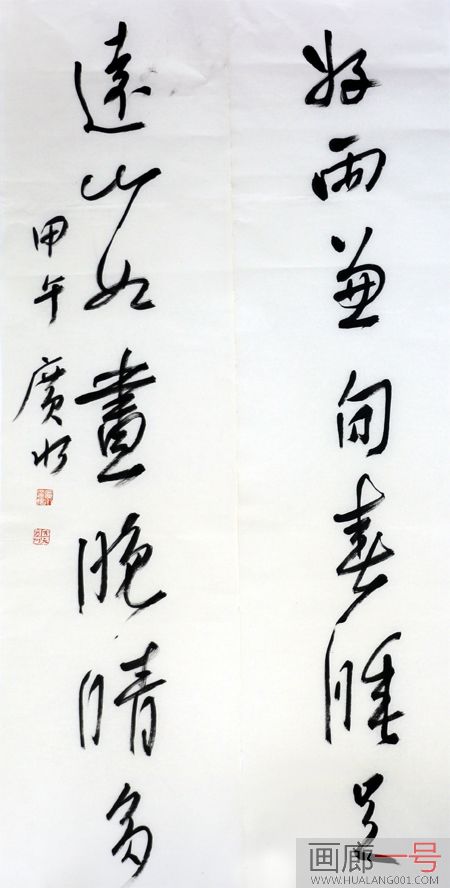 好雨兼旬春睡足
遠山如畫晚晴多
甲午 廣
画廊一号
WWW.HUALANG001.COM